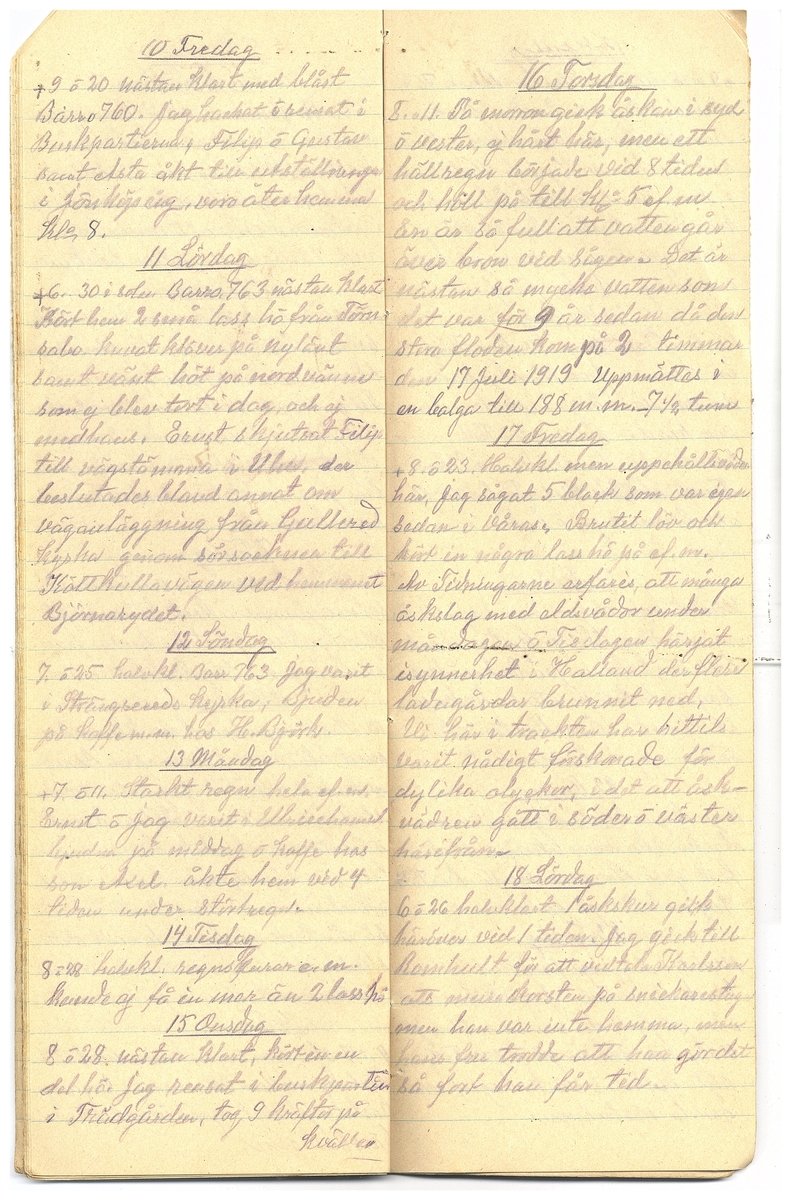 10 Fredag
+9 ō 20 nästan klart med blåst
Barro 760. Jag hackat ō rensat i
Buskpartierna, Filip ō Gustav
samt Asta åkt till utställningen
i Jönköping, voro åter hemma
kl. 8.
11 Lördag
+6 - 30 i solen Barro. 763 nästan klart
Kört hem 2 små lass hö från Törn-
sabo huvat klöver på nylänt
samt vänt höt på nordvännen
som ej blev tort i dag, och ej
medhans. Ernst skjutsat Filip
till vägstämma i Uhra, der
beslutades bland annat om
väganläggning från Gullered
kyrka genom sörsocknen till
Köttkullavägen ved hemmanet
Björnarydet.
12 Söndag
7. ō 25 halvkl. Barr 763 Jag varit
i Strängsereds kyrka, Bjuden
på kaffe m.m. hos H. Björk.
13 Måndag
+7. ō 11. Starkt regn hela ef. m.
Ernst ō jag varit i Ulricehamn
bjudna på middag ō kaffe hos
son Axel. åkte hem vid 4
tiden under störtregn.
14 Tisdag
8 ō 28 halvkl. regnskurar e. m.
kunde ej få in mer än 2 lass hö
15 Onsdag
8 ō 28. nästan klart, kört in en
del hö. Jag rensat i buskpartin
i Trädgården, tog 9 kräftor på
kvällen
16 Torsdag
8. ō 11. På morron gick åskan i syd
ō vester, ej hårt här, men ett
hällregn började vid 8 tiden
och höll på till kl. 5 ef. m
ån är så full att vatten går
över bron vid sågen. Det är
nästan så mycke vatten som
det var för 9 år sedan då den
stora floden kom på 2 timmar
den 17 Juli 1919 Uppmättes i
en balga till 188 m. m. - 7 1/2 tum
17 Fredag
+8. ō 23. Halvkl men uppehållsväder
här, Jag sågat 5 block som var igen
sedan i våras, Brutit löv och
kört in några lass hö på ef. m.
Av Tidningarne erfares, att många
åskslag med eldsvådor under
måndagen ō Tisdagen härjat
isynnerhet i Halland der flere
ladugårdar brunnit ned,
Vi här i trackten har hittils
varit nådigt förskonade för
dylika olyckor, i det att åsk-
vädren gått i söder ō väster
härifrån.
18 Lördag
6 ō 26 halvklart 1 åskskur gick
häröver vid 1 tiden. Jag gick till
Romhult för att vidtala Karlsson
att mura skorsten på snickarestug
men han var inte hemma, men
hans fru trodde att han gör det
så fort han får tid.